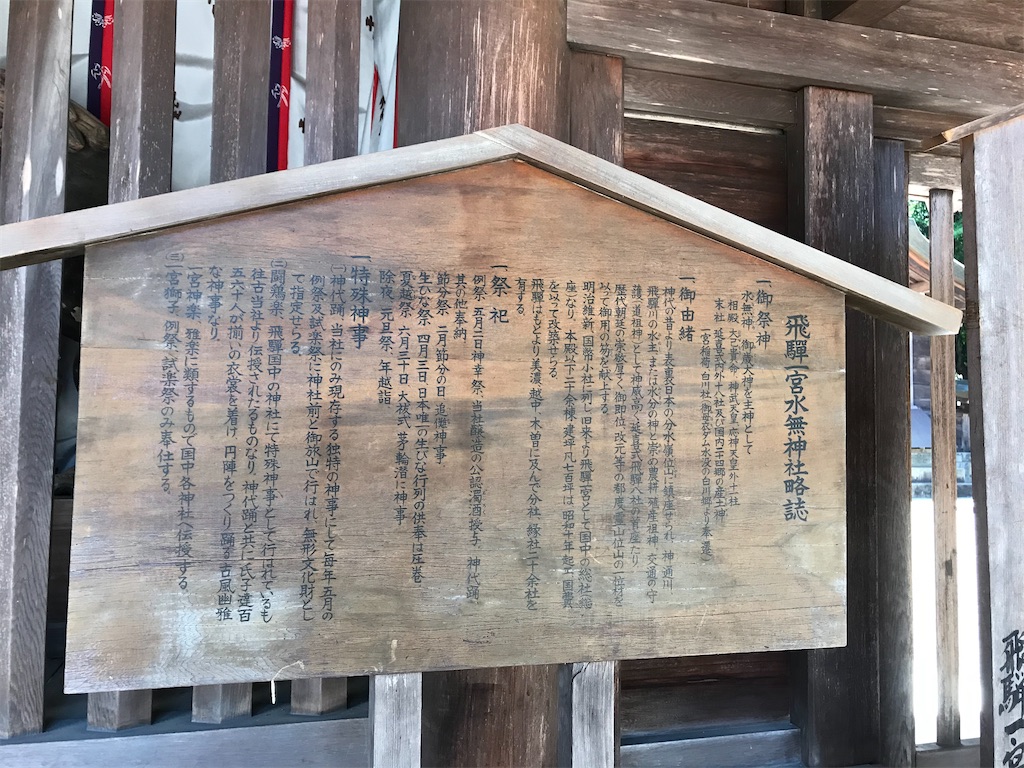 飛驒一宮水無神社略誌
一御祭神
水無神 御歳大神を主神として
相殿 大己貴命 神武天皇 応神天皇外十一社
末社 延喜式内外十八社及び国内二十四郷の産土神
一宮稲荷 白川社(御母衣ダム水没の白川郷より奉遷)
一御由緒
神代の昔より表裏日本の分水嶺位山に鎮座せられ、神通川
飛驒川の水主、または水分の神と崇め農耕、殖産祖神、交通の守
護(道祖神)として神威高く、延喜式飛驒八社の首座たり
歴代朝廷の崇敬厚く、御即位、改元等の都度霊山位山の一位材を
以って御用の笏を献上する。
明治維新、国幣小社に列し旧来より飛驒一宮として国中の総社
座なり、本殿以下二十余棟、建坪凡七百坪は昭和十年起工国費
を以って改築せらる。
飛驒はもとより美濃、越中、木曽に及んで分社、縁社二十余社を
有する。
一祭祀
例祭 五月二日神幸祭、当社醸造の公認濁酒授与、神代踊、
其の他奉納
節分祭 二月節分の日 追儺神事
生びな祭 四月三日 日本唯一の生びな行列の供奉は圧巻
夏越祭 六月三十日 大祓式 茅の輪潜に神事
除夜祭、元旦祭、年越詣
一特殊神事
(一)神代踊、当社にのみ現存する独特の神事にして毎年五月の
例祭及試楽祭に神社前と御旅山で行はれ、無形文化財とし
て指定せらる。
(二)闘鶏楽、飛驒国中の神社にて特殊神事として行はれているも
往古当社より伝授されたるものなり、神代踊と共に氏子達百
五六十人が揃いの衣裳を着け、円陣をつくり踊る古風幽雅
な神事なり。
一宮神楽、雅楽に類するもので国中各神社へ伝授する。
(三)宮獅子、例祭、試楽祭のみ奉仕する。
飛騨一宮